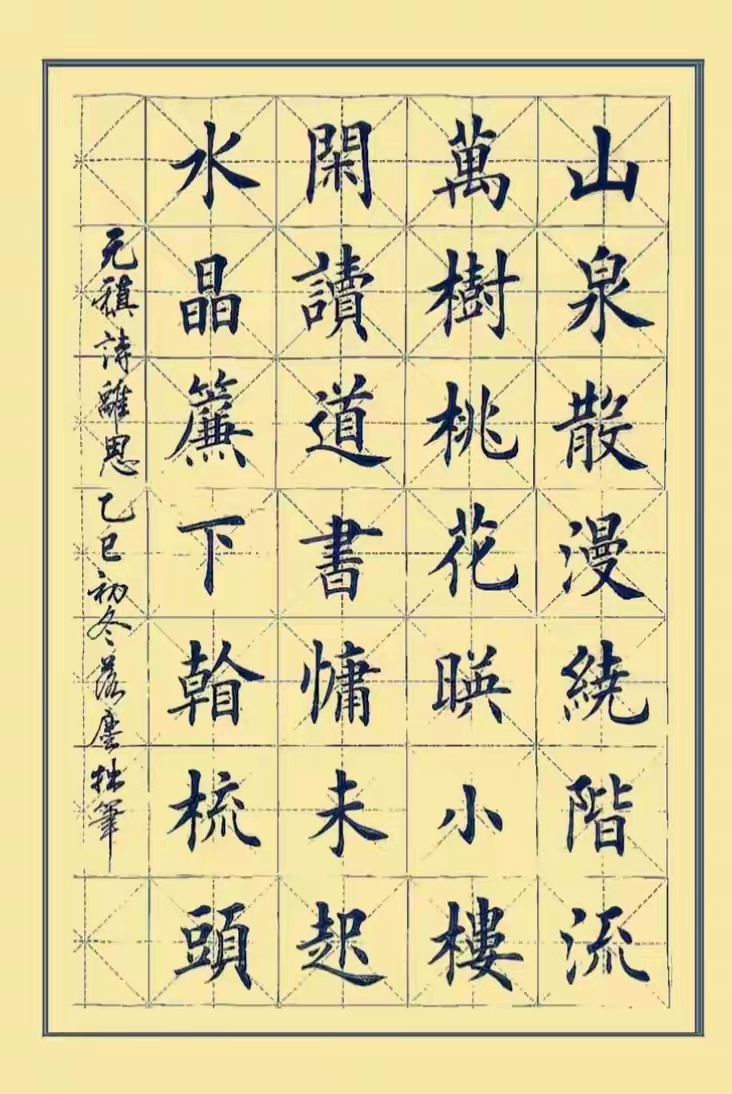 山泉散漫繞階流
萬樹桃花暎小樓
閑讀道書慵未起
水晶簾下看梳頭
元稹詩離思 乙巳初冬落塵拙筆